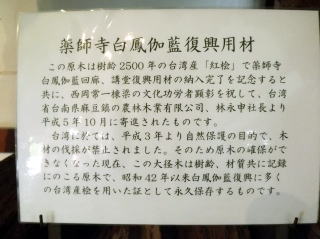 薬師寺白鳳伽藍復興用材
この原木は樹齢2500年の台湾産「紅桧」で薬師寺
白鳳伽藍回廊、講堂復興用材の納入完了を記念すると
共に、西岡常一棟梁の文化功労者顕彰を祝して、台湾
省台南県麻豆鎮の農林木業有限公司、林永章社長より
平成5年10月に寄進されたものです。
台湾に於ては、平成3年より自然保護の目的で、木
材の伐採が禁止されました。そのため原木の確保がで
きなくなった現在、この大径木は樹齢、材質共に記録
にのこる原木で、昭和42年以来白鳳伽藍復興に多く
の台湾産桧を用いた証として永久保存するものです。